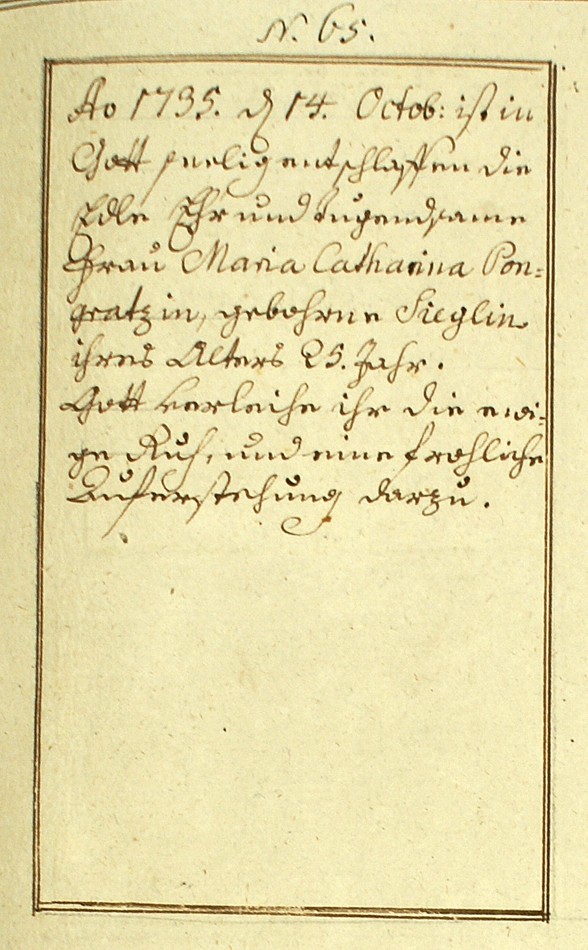 N. 65.
Ao 1735. d 14. Octob: ist in
Gott seelig entschlaffen die
Edle Ehr und tugendsame
Frau Maria Catharina Pon=
gratzin, gebohrne Sieglin
ihres Alters 25. Jahr.
Gott verleihe ihr die ewi=
ge Ruh, und eine frohliche
Auferstehung darzu.